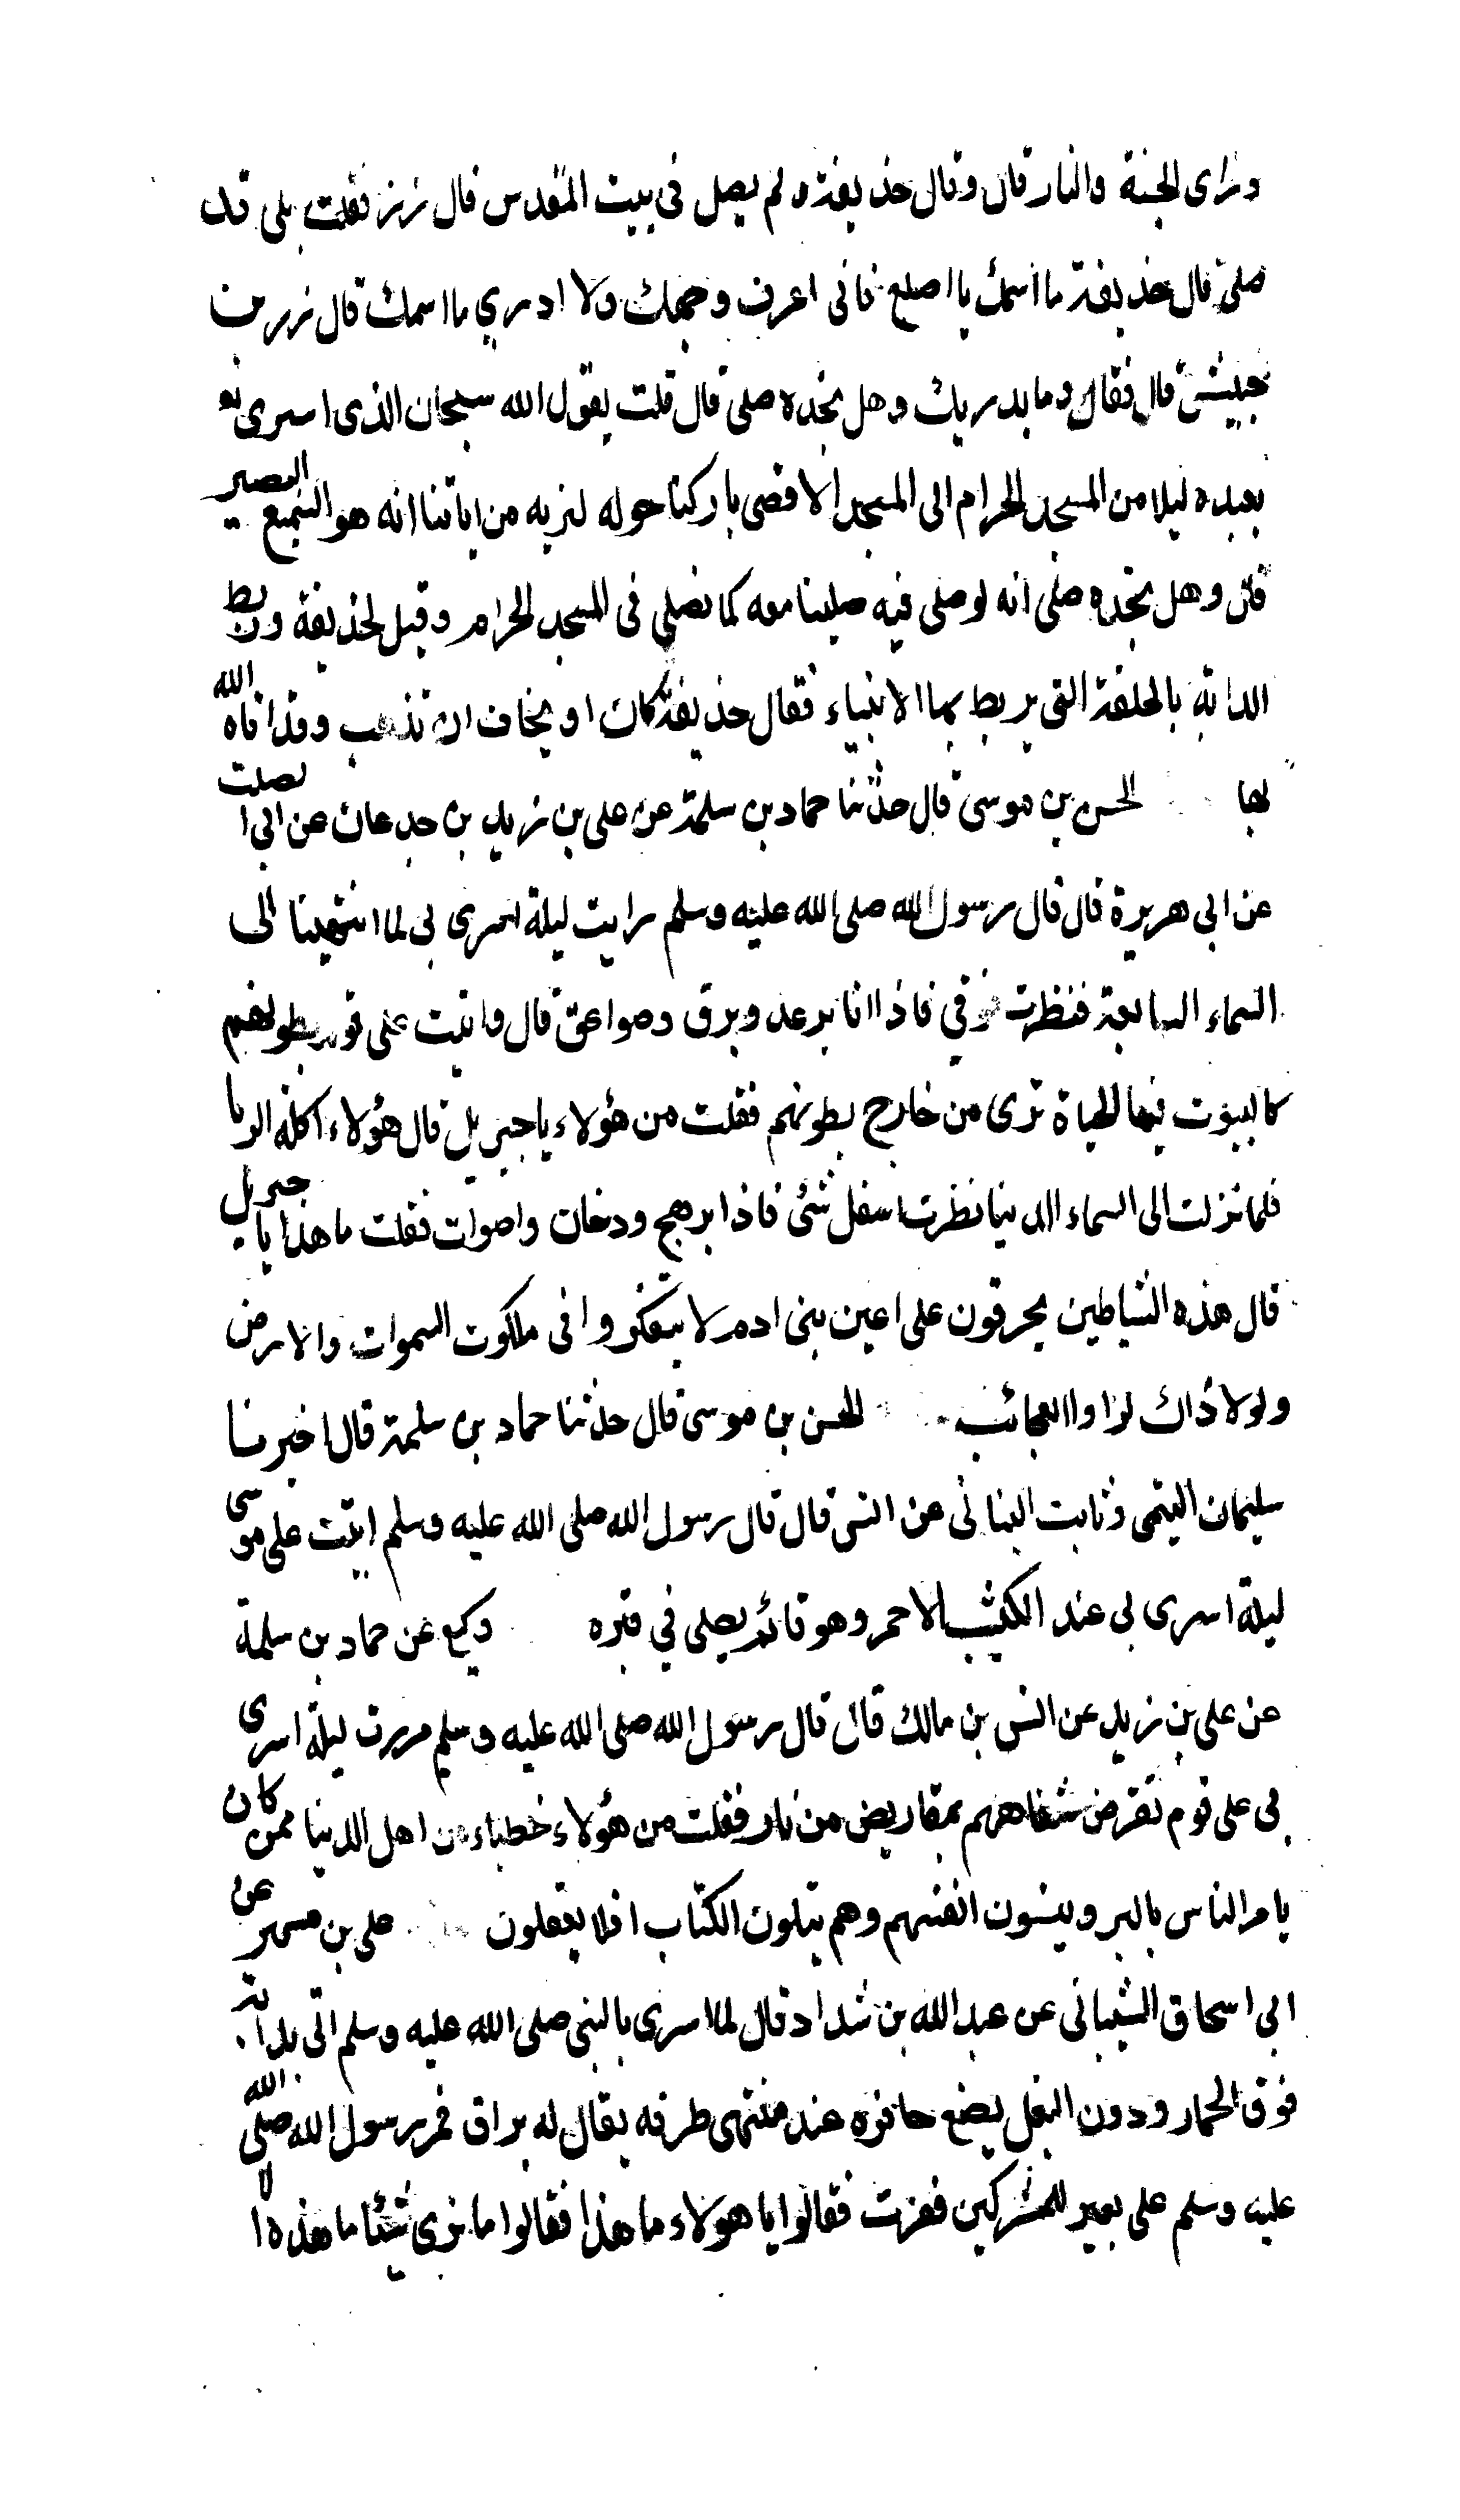 وراى الجنة والنار قال وقال حذيفة ولم يصل في بيت المقدس قال زر فقلت بلى قد
صلى قال حذيفة ما اسمك يا اصلع فاني اعرف وجهك ولا ادري ما اسمك قال زر بن
حبيش قال فقال وما يدريك وهل تجده صلى قال قلت يقول الله سبحان الذي اسرى
بعبده ليلا من المسجد الحرام الى المسجد الاقصى باركنا حوله لنريه من اياتنا انه هو السميع البصير
قال وهل تجده صلى انه لو صلى فيه صلينا معه كما نصلي في المسجد الحرام وقيل لحذيفة وربط
الدابة بالحلقة التي يربط بها الانبياء فقال حذيفة كان او يخاف ان تذهب وقد اتاه الله
بها الحسن بن موسى قال حدثنا حماد بن سلمة عن علي بن زيد بن جدعان عن ابي الصلت
عن ابي هريرة قال قال رسول الله صلى الله عليه وسلم رايت ليلة اسرى بي لما انتهينا الى
السماء السابعة فنظرت فوقي فاذا انا برعد وبرق وصواعق قال واتيت على قوم بطونهم
كالبيوت فيها الحياة ترى من خارج بطونهم فقلت من هؤلاء يا جبريل قال هؤلاء اكلة الربا
فلما نزلت الى السماء الدنيا نظرت اسفل شئ فاذا برهج ودخان واصوات فقلت ما هذا يا جبريل
قال هذه الشياطين يحرفون على اعين بني ادم لا يتفكروا في ملكوت السموات والارض
ولولا ذاك لراوا العجائب الحسن بن موسى قال حدثنا حماد بن سلمة قال اخبرنا
سليمان التيمى وثابت البناني عن انس قال قال رسول الله صلى الله عليه وسلم اتيت على موسى
ليلة اسرى بي عند الكثيب الاحمر وهو قائم يصلي في قبره وكيع عن حماد بن سلمة
عن علي بن زيد عن انس بن مالك قال قال رسول الله صلى الله عليه وسلم مررت ليلة اسرى
بي على قوم تقرض شفاههم بمقاريض من نار فقلت من هؤلاء خطباء من اهل الدنيا ممن كان
يامر الناس بالبر وينسون انفسهم وهم يتلون الكتاب افلا يعقلون علي بن مسهر عن
ابي اسحاق الشيباني عن عبد الله بن شداد قال لما اسرى بالنبي صلى الله عليه وسلم اتى بدابة
فوق الحمار ودون البغل يضع حافره عند منتهى طرفه يقال له براق فمر رسول الله صلى الله
عليه وسلم على بعير للمشركين فنفرت فقالوا يا هولاء ما هذا فقالوا ما نرى شيئا ما هذه الا